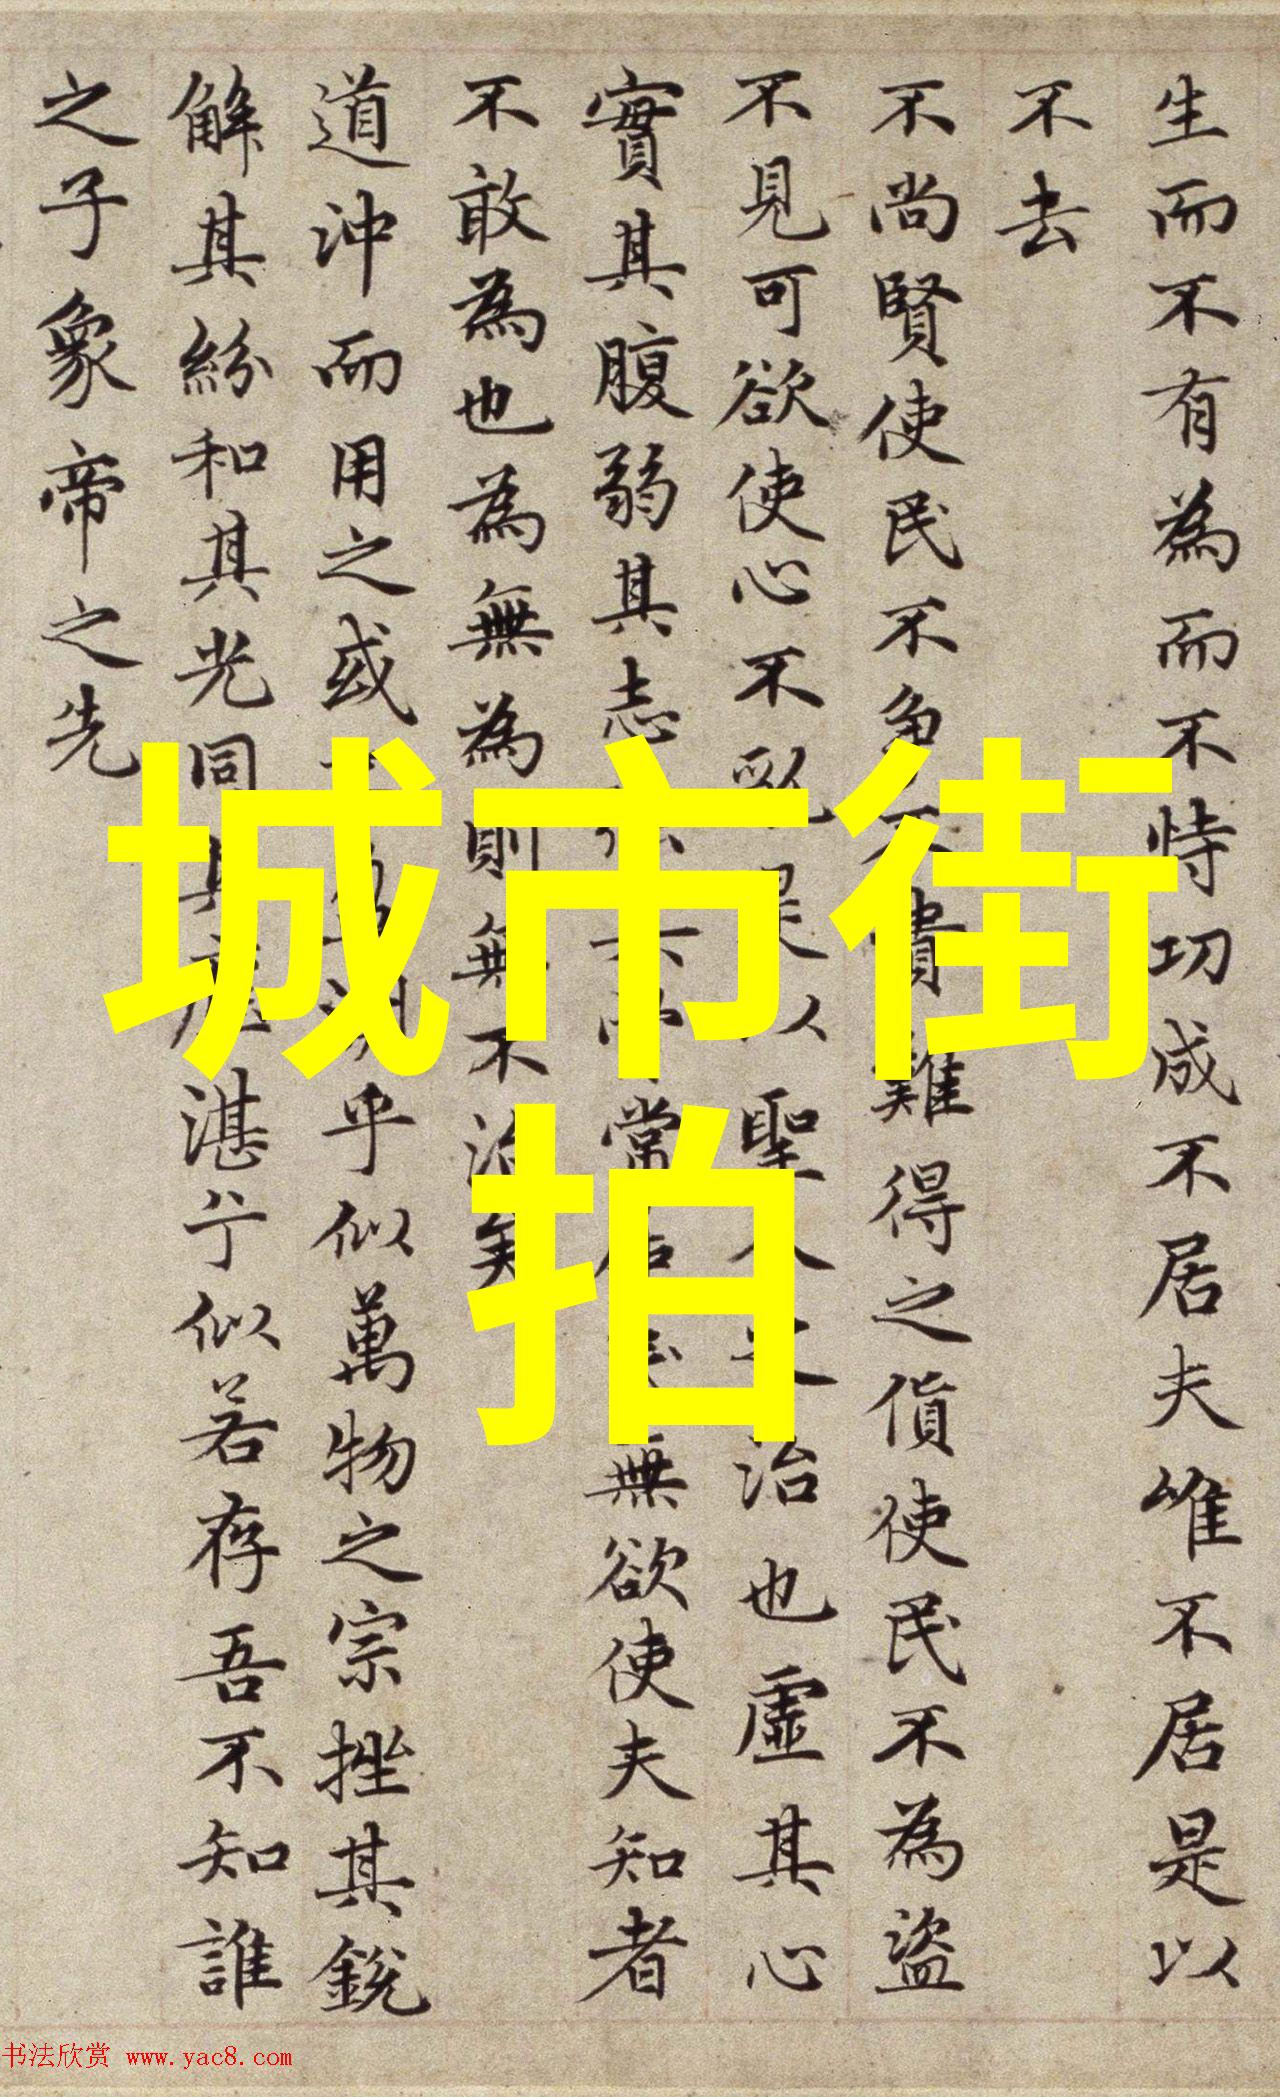 生而不有為而不恃功成不居夫唯不居是以
不去
不尚賢使民不争貴難得之貨使民不為盜
不見可欲使心不是以聖人之治也虛其心
實其腹弱其志常無欲使夫知者
不敢為也為無為則無不治矣
道沖而用之或乎似萬物之宗挫其銳
解其紛和其光同其湛兮似若存吾不知誰
之子象帝之先
城市街
拍
书法欣赏 www.yac8.com